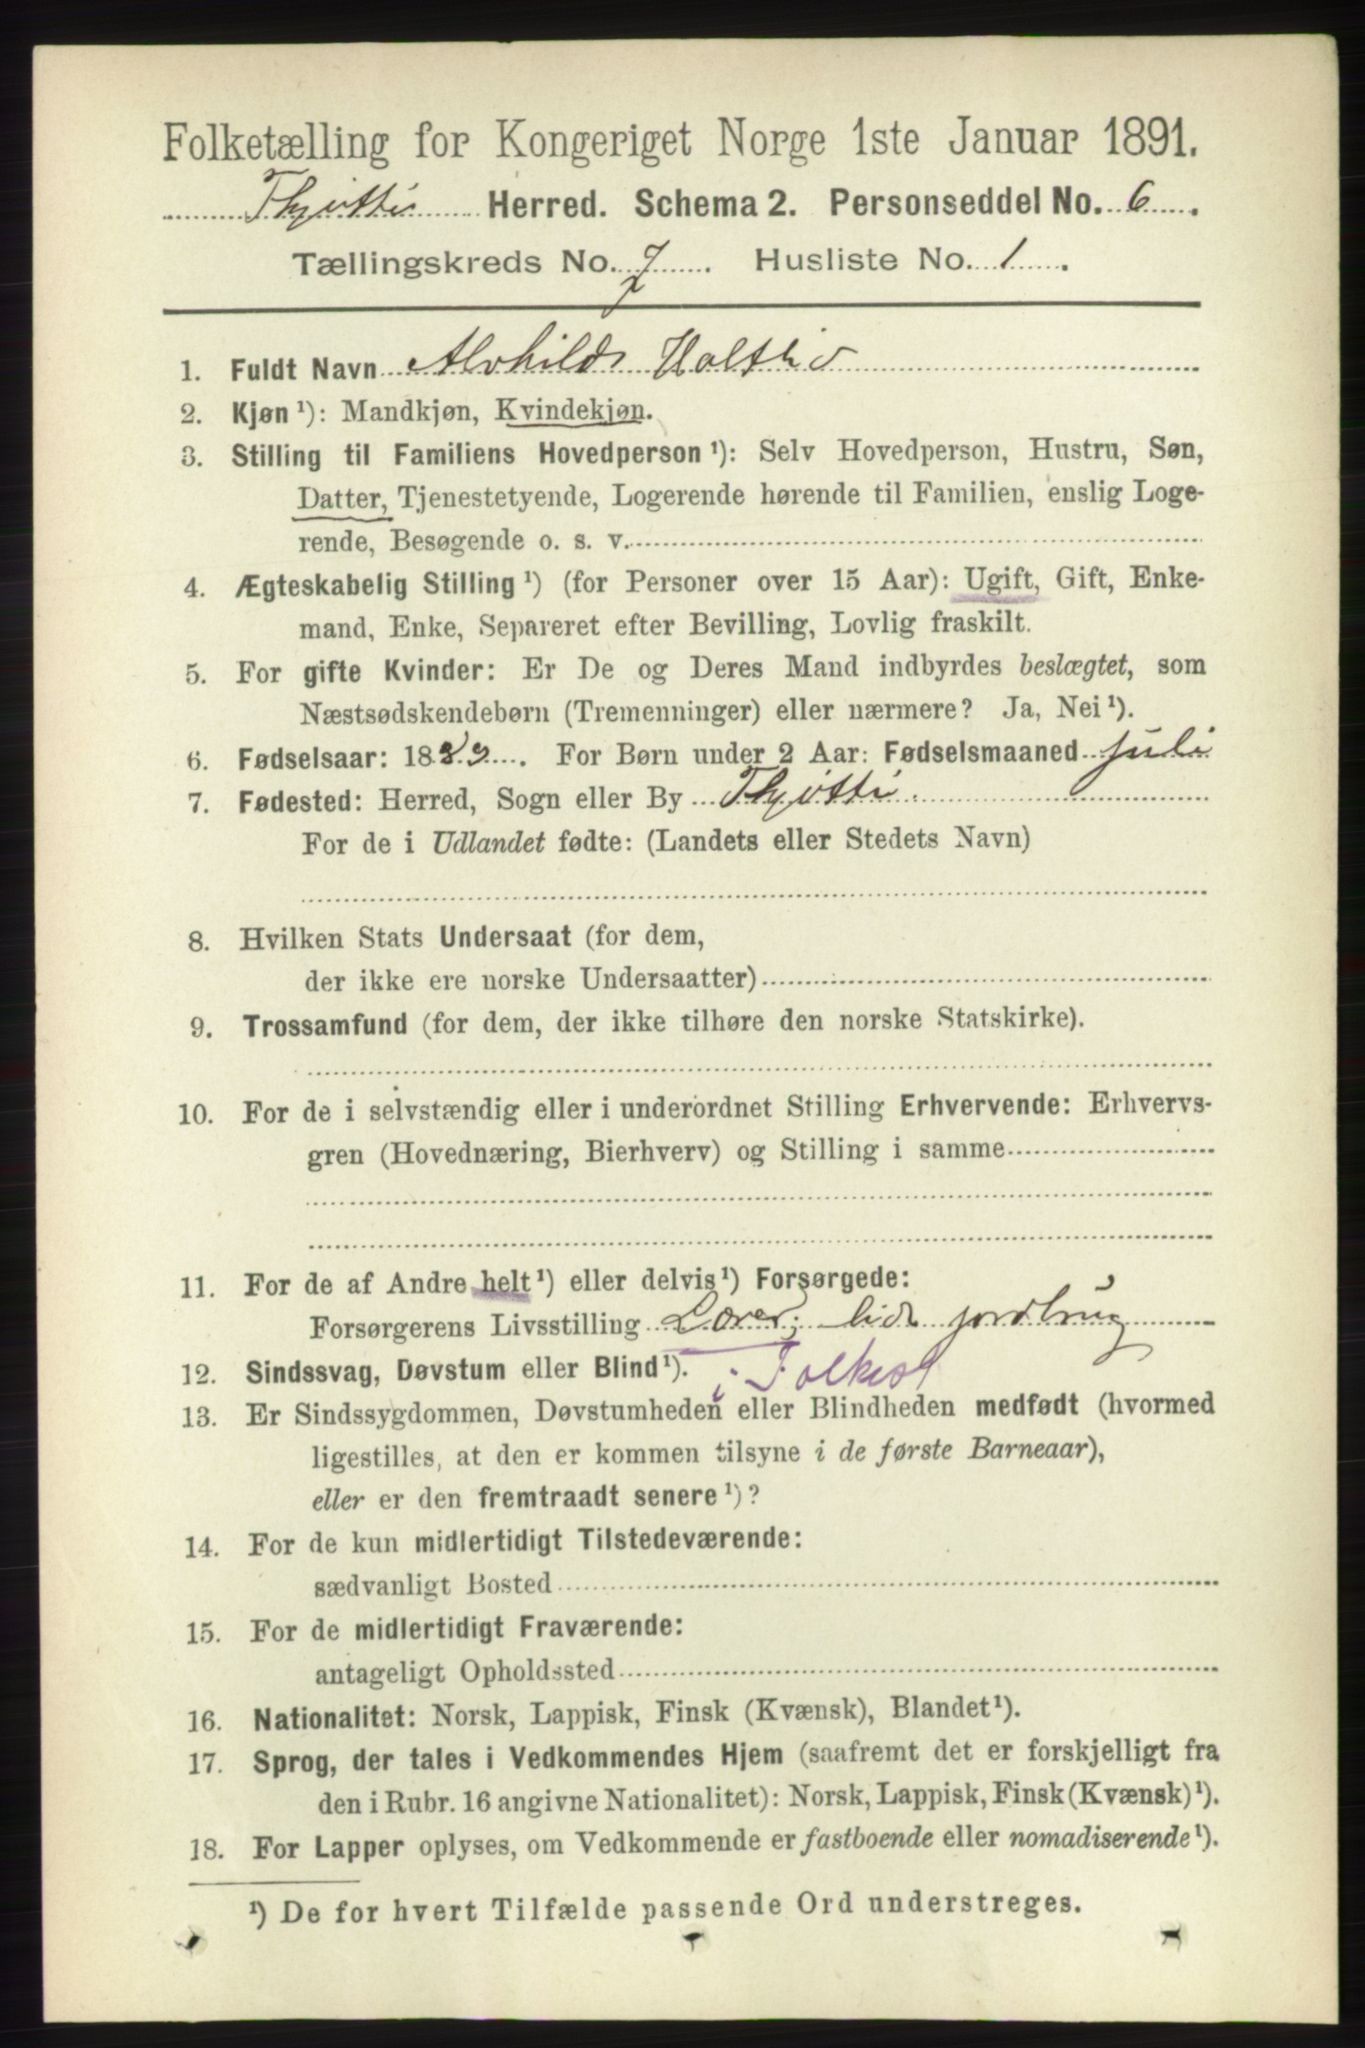 Folketælling for Kongeriget Norge 1ste Januar 1891.
Thjøttø Herred. Schema 2. Personseddel No. 6.
Tællingskreds No. 7. Husliste No. 1.
1. Fuldt Navn Alvhild Holtlid
2. Kjøn ¹): Mandkjøn, Kvindekjøn.
3. Stilling til Familiens Hovedperson ¹): Selv Hovedperson, Hustru, Søn,
Datter, Tjenestetyende, Logerende hørende til Familien, enslig Loge-
rende, Besøgende o. s. v.
4. Ægteskabelig Stilling ¹) (for Personer over 15 Aar): Ugift, Gift, Enke-
mand, Enke, Separeret efter Bevilling, Lovlig fraskilt.
5. For gifte Kvinder: Er De og Deres Mand indbyrdes beslægtet, som
Næstsødskendebørn (Tremenninger) eller nærmere? Ja, Nei ¹).
6. Fødselsaar: 1889. For Børn under 2 Aar: Fødselsmaaned juli
7. Fødested: Herred, Sogn eller By Thjøttø.
For de i Udlandet fødte: (Landets eller Stedets Navn)
8. Hvilken Stats Undersaat (for dem,
der ikke ere norske Undersaatter)
9. Trossamfund (for dem, der ikke tilhøre den norske Statskirke).
10. For de i selvstændig eller i underordnet Stilling Erhvervende: Erhvervs-
gren (Hovednæring, Bierhverv) og Stilling i samme
11. For de af Andre helt ¹) eller delvis ¹) Forsørgede:
Forsørgerens Livsstilling Lærer; lidt jordbrug
12. Sindssvag, Døvstum eller Blind ¹). i Folkesk
13. Er Sindssygdommen, Døvstumheden eller Blindheden medfødt (hvormed
ligestilles, at den er kommen tilsyne i de første Barneaar),
eller er den fremtraadt senere ¹)?
14. For de kun midlertidigt Tilstedeværende:
sædvanligt Bosted
15. For de midlertidigt Fraværende:
antageligt Opholdssted
16. Nationalitet: Norsk, Lappisk, Finsk (Kvænsk), Blandet ¹).
17. Sprog, der tales i Vedkommendes Hjem (saafremt det er forskjelligt fra
den i Rubr. 16 angivne Nationalitet): Norsk, Lappisk, Finsk (Kvænsk) ¹).
18. For Lapper oplyses, om Vedkommende er fastboende eller nomadiserende ¹).
¹) De for hvert Tilfælde passende Ord understreges.